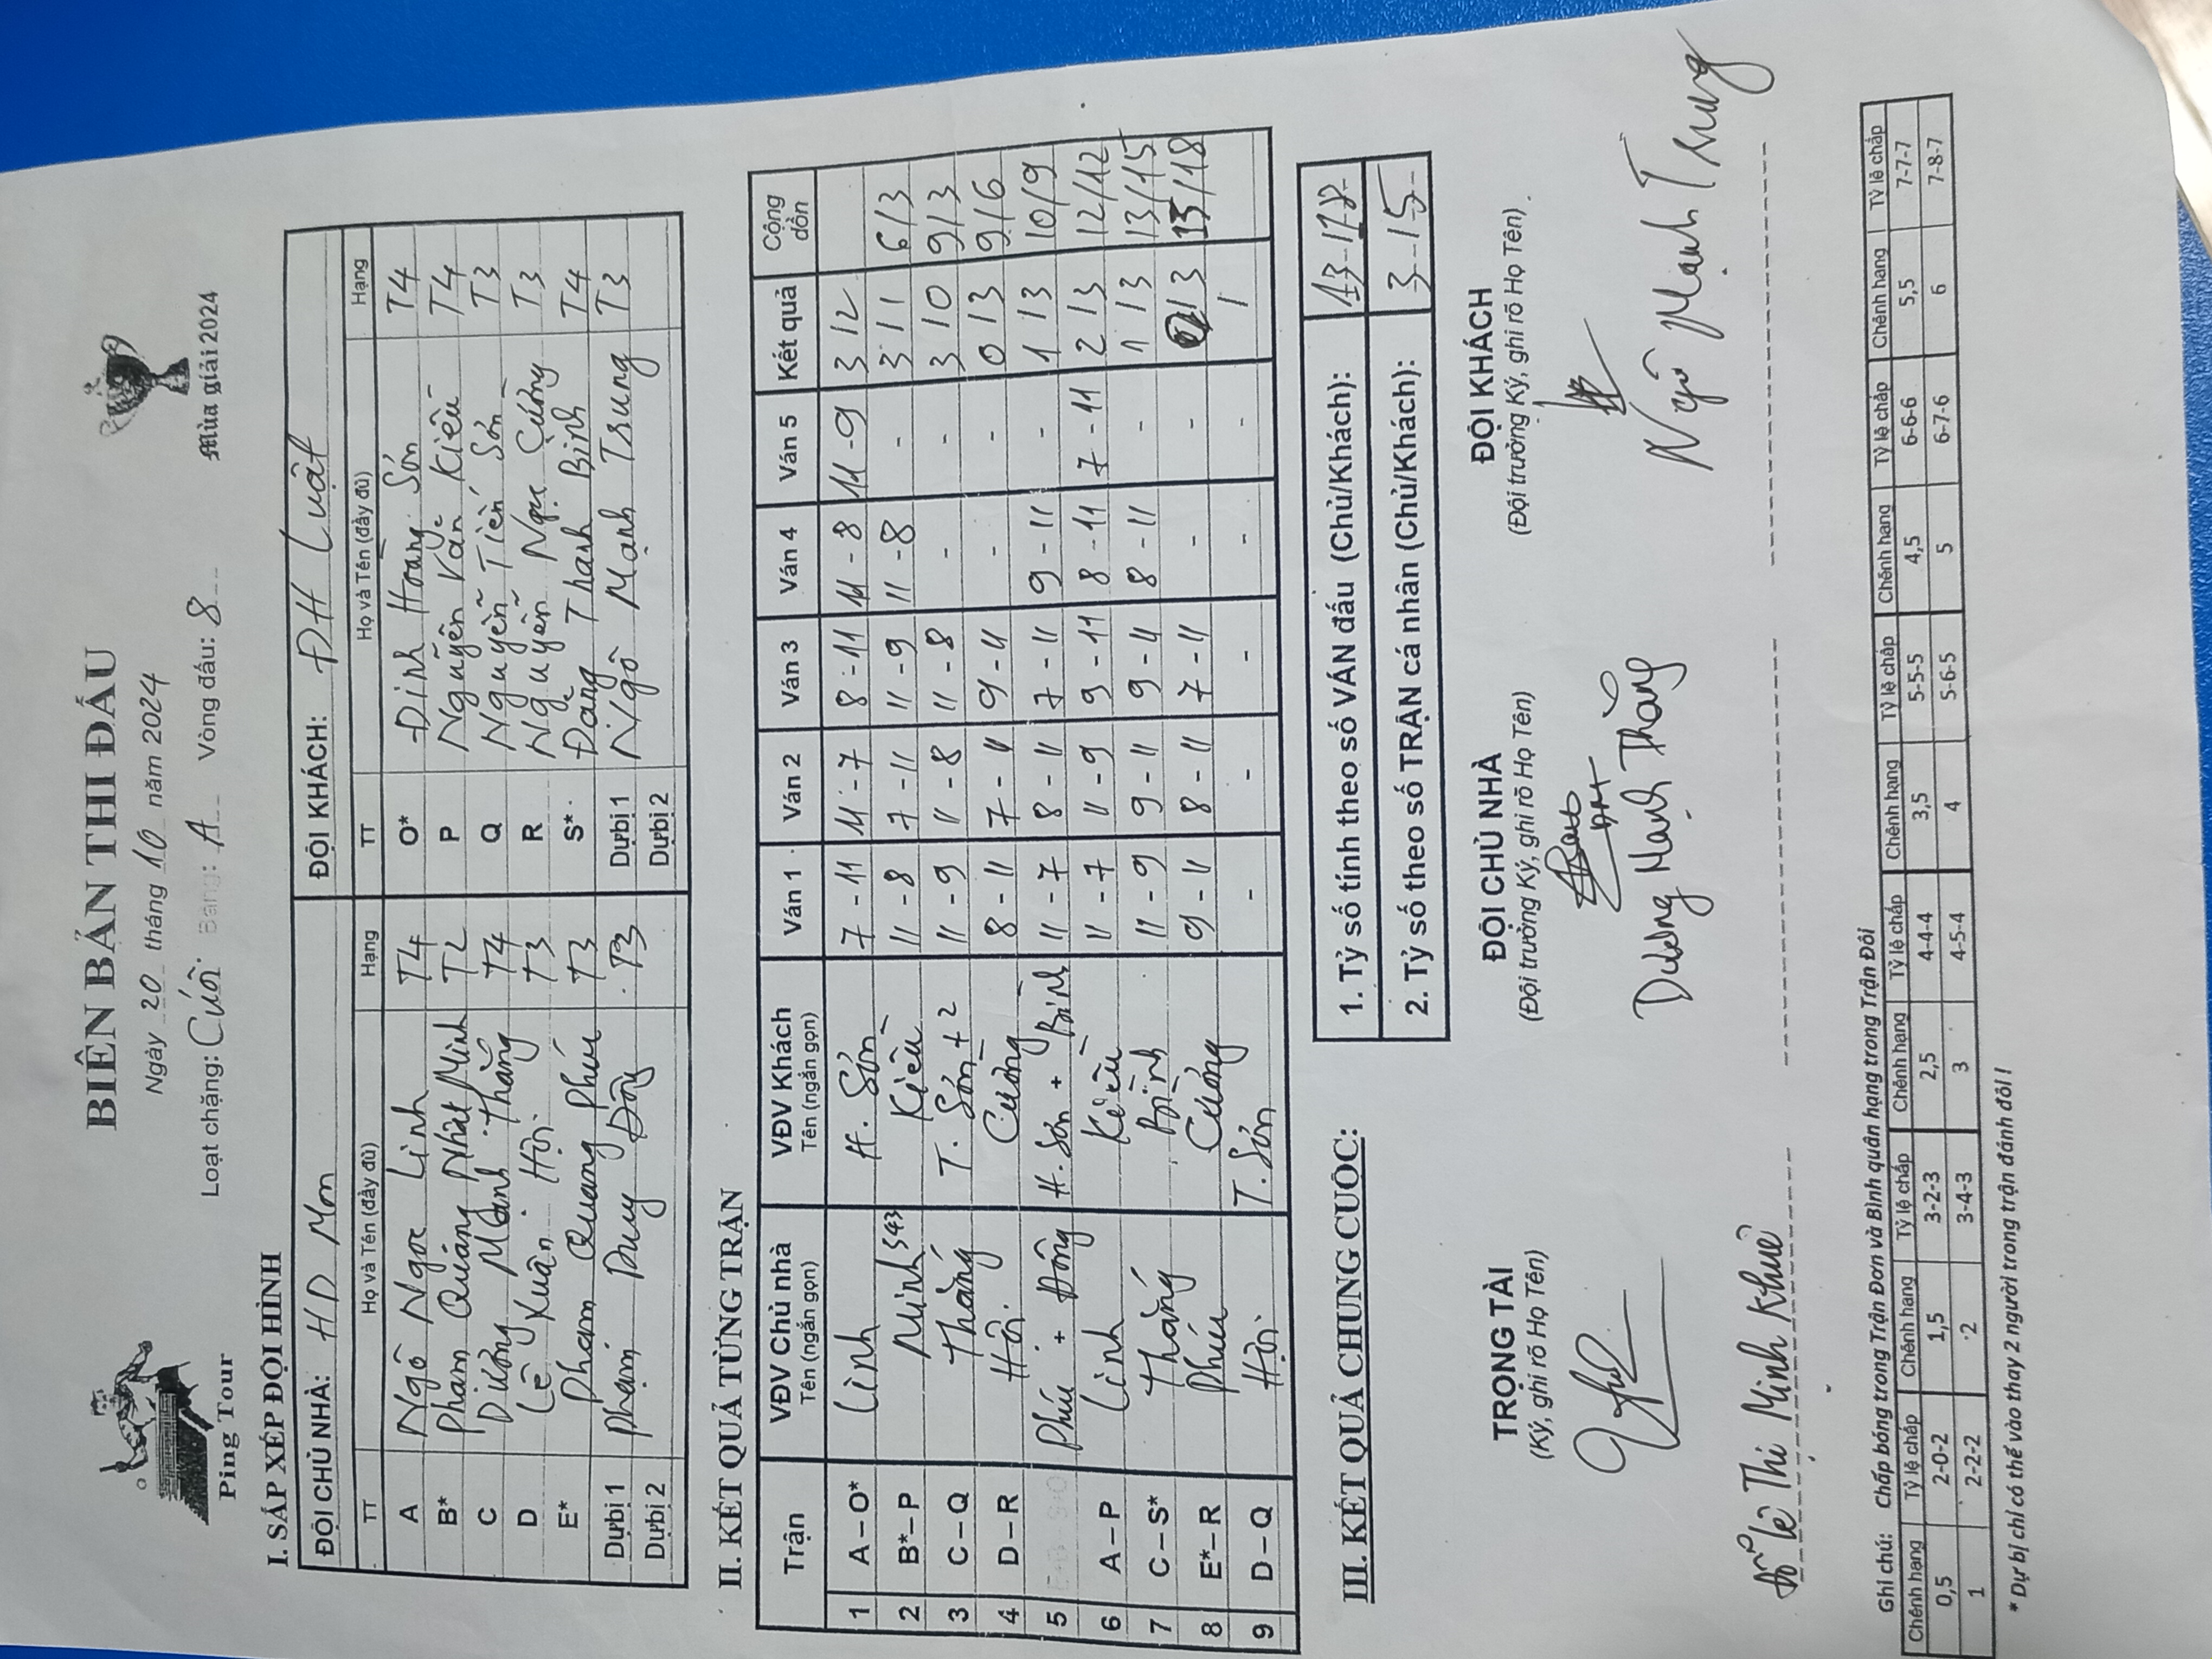 BIÊN BẢN THI ĐẤU
Ngày 20 tháng 10 năm 2024
Loạt chặng: Cuối. Bảng: A Vòng đấu: 8
Ping Tour
Mùa giải 2024
I. SẮP XẾP ĐỘI HÌNH
ĐỘI CHỦ NHÀ: HD Mon ĐỘI KHÁCH: ĐH Luật
TT Họ và Tên (đầy đủ) Hạng TT Họ và Tên (đầy đủ) Hạng
A Ngô Ngọc Linh T4 O* Đinh Hoàng Sơn T4
B* Phạm Quang Nhật Minh T2 P Nguyễn Văn Kiều T4
C Dương Mạnh Thắng T4 Q Nguyễn Tiến Sơn T3
D Lê Xuân Hội T3 R Nguyễn Ngọc Cường T3
E* Phạm Quang Phú T3 S* Đặng Thanh Bình T4
Dự bị 1 Phạm Duy Đông T3 Dự bị 1 Ngô Mạnh Trung T3
Dự bị 2 Dự bị 2
II. KẾT QUẢ TỪNG TRẬN
Trận VĐV Chủ nhà Tên (ngắn gọn) VĐV Khách Tên (ngắn gọn) Ván 1 Ván 2 Ván 3 Ván 4 Ván 5 Kết quả Cộng dồn
1 A – O* Linh H. Sơn 7 - 11 11 - 7 8 - 11 11 - 8 11 - 9 3 / 2
2 B* – P Minh 543 Kiều 11 - 8 7 - 11 11 - 9 11 - 8 - 3 / 1 6/3
3 C – Q Thắng T. Sơn + 2 11 - 9 11 - 8 11 - 8 - - 3 / 0 9/3
4 D – R Hội Cường 8 - 11 7 - 11 9 - 11 - - 0 / 3 9/6
5 Phú + Đông H. Sơn + Bình 11 - 7 8 - 11 7 - 11 9 - 11 - 1 / 3 10/9
6 A – P Linh Kiều 11 - 7 11 - 9 9 - 11 8 - 11 7 - 11 2 / 3 12/12
7 C – S* Thắng Bình 11 - 9 9 - 11 9 - 11 8 - 11 - 1 / 3 13/15
8 E* – R Phú Cường 9 - 11 8 - 11 7 - 11 - - 0 / 3 13/18
9 D – Q Hội T. Sơn - - - - /
III. KẾT QUẢ CHUNG CUỘC:
1. Tỷ số tính theo số VÁN đấu (Chủ/Khách): 13 / 18
2. Tỷ số theo số TRẬN cá nhân (Chủ/Khách): 3 / 5
TRỌNG TÀI ĐỘI CHỦ NHÀ ĐỘI KHÁCH
(Ký, ghi rõ Họ Tên) (Đội trưởng Ký, ghi rõ Họ Tên) (Đội trưởng Ký, ghi rõ Họ Tên)
Đỗ Lê Thị Minh Khuê Dương Mạnh Thắng Ngô Mạnh Trung
Ghi chú: Chấp bóng trong Trận Đơn và Bình quân hạng trong Trận Đôi
Chênh hạng Tỷ lệ chấp Chênh hạng Tỷ lệ chấp Chênh hạng Tỷ lệ chấp Chênh hạng Tỷ lệ chấp Chênh hạng Tỷ lệ chấp Chênh hạng Tỷ lệ chấp
0,5 2-0-2 1,5 3-2-3 2,5 4-4-4 3,5 5-5-5 4,5 6-6-6 5,5 7-7-7
1 2-2-2 2 3-4-3 3 4-5-4 4 5-6-5 5 6-7-6 6 7-8-7
* Dự bị chỉ có thể vào thay 2 người trong trận đánh đôi !